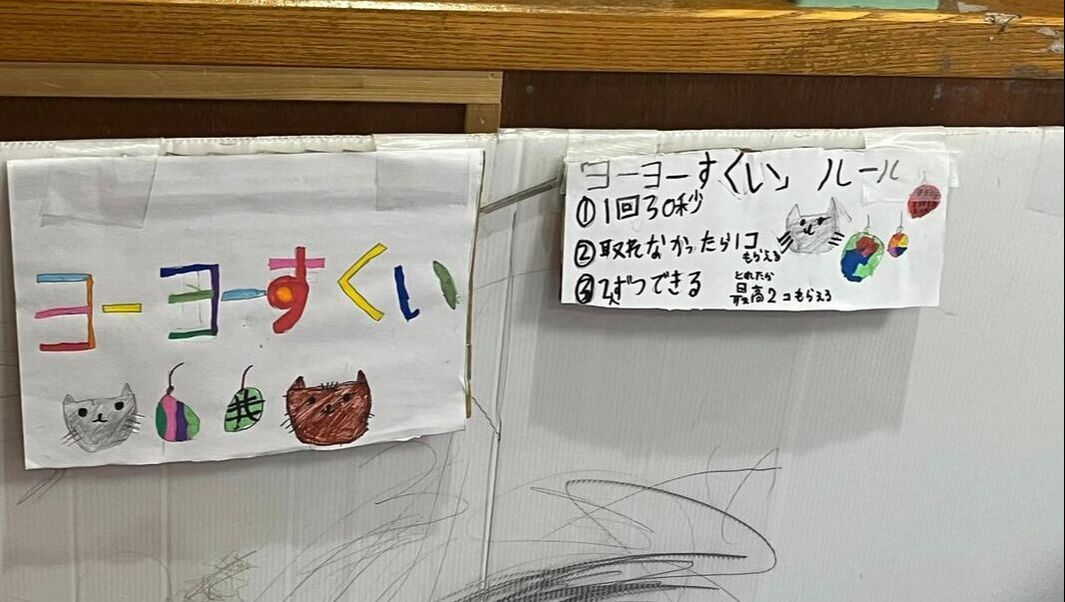 ヨーヨーすくい
「ヨーヨーすくい」ルール
①1回30秒
②取れなかったら1コ
もらえる
③2人ずつできる
とれたら
最高2コもらえる